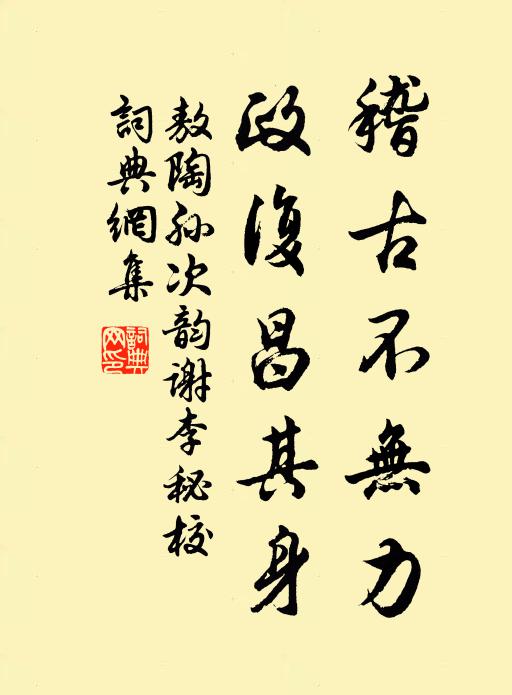 稽古不無力
政復昌其身
敖陶孙次韵谢李秘校
詞典網集
詞典網印